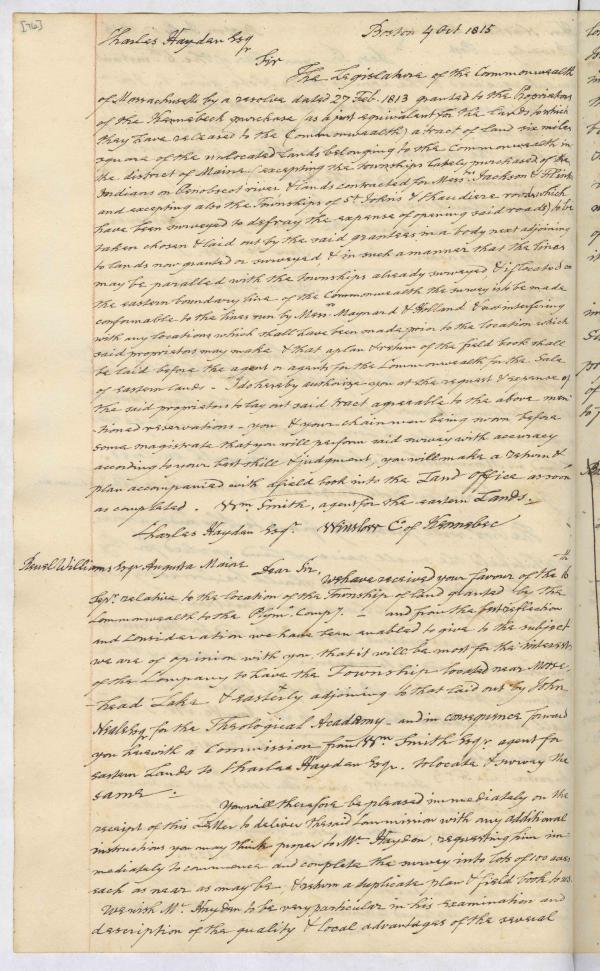 [76]
Boston 4 Oct 1815
Charles Hayden Esqr
Sir
The Legislature of the Commonwealth
of Massachusetts by a resolve dated 27 Feb. 1813 granted to the Proprietors
of the Kennebeck purchase (as a just equivalent for the lands to which
they have released to the Commonwealth) a tract of land six miles
square of the unlocated lands belonging to the Commonwealth in
the district of Maine (excepting the townships lately purchased of the
Indians on Penobscot river & lands contracted for Messrs Jackson & Flint
and excepting also the Townships of St Johns & Chaudiere roads which
have been surveyed to defray the expense of opening said roads) to be
taken chosen & laid out by the said grantees, in a body next adjoining
to lands now granted or surveyed, & in such a manner that the lines
may be parallel with the townships already surveyed & if located on
the eastern boundary line of the Commonwealth the survey is to be made
conformable to the lines run by Messrs Maynard & Holland & not interfering
with any locations which shall have been made prior to the location which
said proprietors may make & that a plan & return of the field book shall
be laid before the agent or agents for the Commonwealth for the Sale
of eastern lands - I do hereby authorize you at the request & expense of
the said proprietors to lay out said tract agreeable to the above men
-tioned reservations - you & your chainmen being sworn before
some magistrate that you will perform said survey with accuracy
according to your best skill & judgment, you will make a return &
plan accompanied with a field book into the Land office as soon
as completed. Wm Smith, agent for the eastern Lands.
Charles Hayden Esqr. Winslow Co of Kennebec
Reuel Williams Esqr Augusta Maine
Dear Sir,
We have received your favour of the 6th
Sepr. relative to the location of the Township of land granted by the
Commonwealth to the Plymo. Compy. - and from the reflection
and Consideration we have been enabled to give to the subject
we are of opinion with you, that it will be most for the interest
of the Company to have the Township located near Moose
head Lake & easterly adjoining to that laid out by John
Neale Esqr for the Theological Academy - and in consequence forward
you herewith a Commission from Wm Smith Esqr. agent for
eastern Lands to Charles Hayden Esqr. to locate & survey the
same -
You will therefore be pleased immediately on the
receipt of this Letter to deliver the said Commission with any additional
instructions you may think proper to Mr Hayden, requesting him im
mediately to commence and complete the survey into lots of 100 acres
each as near as may be, & return a duplicate plan & field book to us.
We wish Mr. Hayden to be very particular in his examination and
description of the quality & local advantages of the several